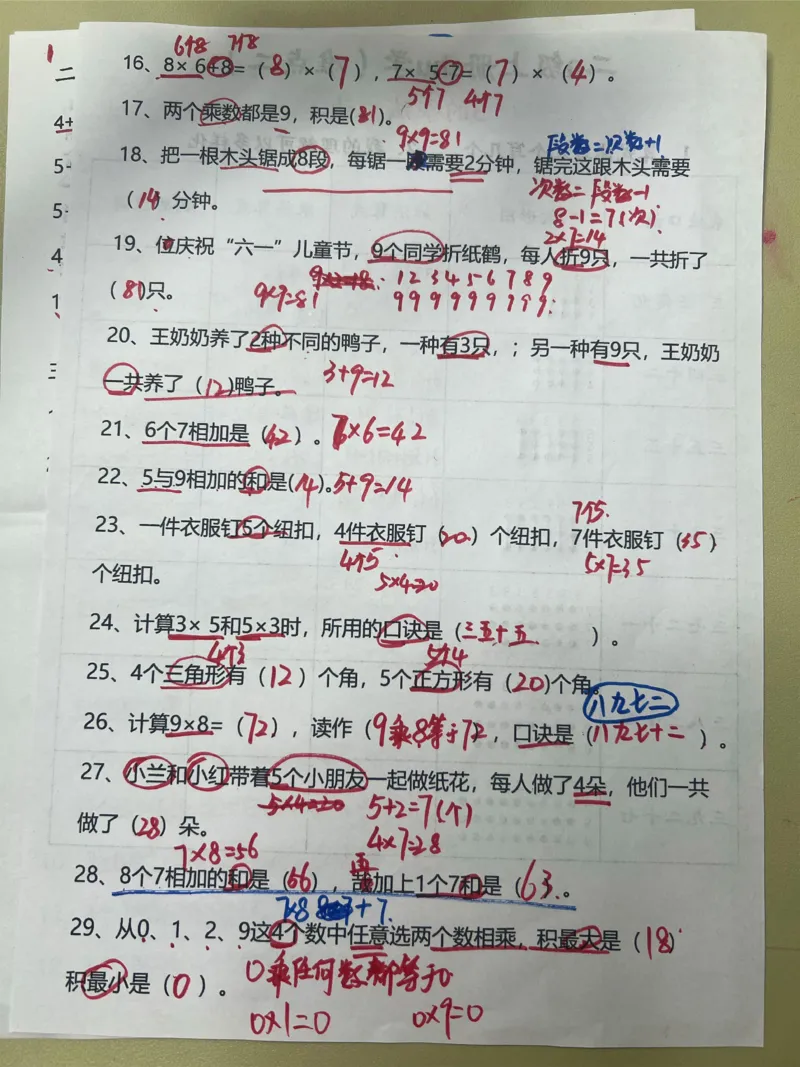 6个8 7个8
16、8×6+8=(8)×(7),7×5-7=(7)×(4)。
5个7 4个7
17、两个乘数都是9,积是(81)。
9×9=81
段数=次数+1
18、把一根木头锯成8段,每锯一 需要2分钟,锯完这跟木头需要
次数=段数-1
(14)分钟。
8-1=7(次)
2×7=14
19、位庆祝“六一”儿童节,9个同学折纸鹤,每人折9只,一共折了
1 2 3 4 5 6 7 8 9
(81)只。 9×9=81 9 9 9 9 9 9 9 9 9
20、王奶奶养了2种不同的鸭子,一种有3只,;另一种有9只,王奶奶
一共养了(12)鸭子。 3+9=12
21、6个7相加是(42)。7×6=42
22、5与9相加的和是(14)。5+9=14
7个5
23、一件衣服钉5个纽扣,4件衣服钉(20)个纽扣,7件衣服钉(35)
4个5 5×7=35
5×4=20
个纽扣。
24、计算3×5和5×3时,所用的口诀是(三五十五)。
4个3 5个4
25、4个三角形有(12)个角,5个正方形有(20)个角。
八九七二
26、计算9×8=(72),读作(9乘8等于72,口诀是(八九七十二)。
27、小兰和小红带着5个小朋友一起做纸花,每人做了4朵,他们一共
5×4=20 5+2=7(个)
做了(28)朵。 4×7=28
7×8=56
再
28、8个7相加的和是(56), 加上1个7和是(63。
7×8 +7
29、从0、1、2、9这4个数中任意选两个数相乘,积最大是(18)
积最小是(0)。 0乘任何数都等于0
0×1=0 0×9=0